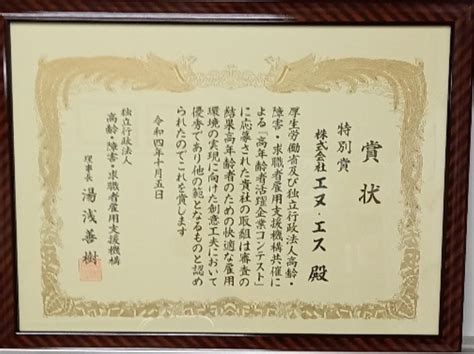 賞状
特別賞
株式会社エヌ・エス 殿
厚生労働省及び独立行政法人高齢・
障害・求職者雇用支援機構共催に
よる「高年齢者活躍企業コンテスト」
に応募された貴社の取組は審査の
結果高年齢者のための快適な雇用
環境の実現に向けた創意工夫において
優秀であり他の範となるものと認め
られたのでこれを賞します
令和四年十月五日
独立行政法人
高齢・障害・求職者雇用支援機構
理事長 湯浅善樹